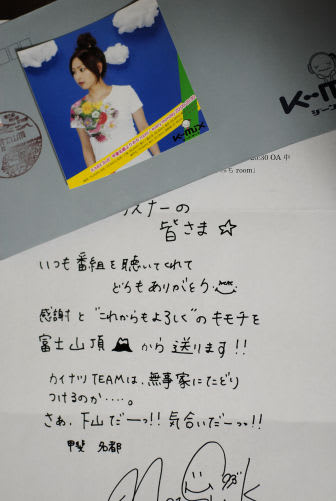 K-mix
K-mix
20:30 OA 中
room」
スナーの
皆さま☆
いつも番組を聴いてくれて
どうもありがとう
感謝と"これからもよろしく"のキモチを
富士山頂から送ります!!
カイナツTEAMは、無事家にたどり
つけるのか……。
さぁ、下山だーっ!! 気合いだーっっ!!
甲斐 名都